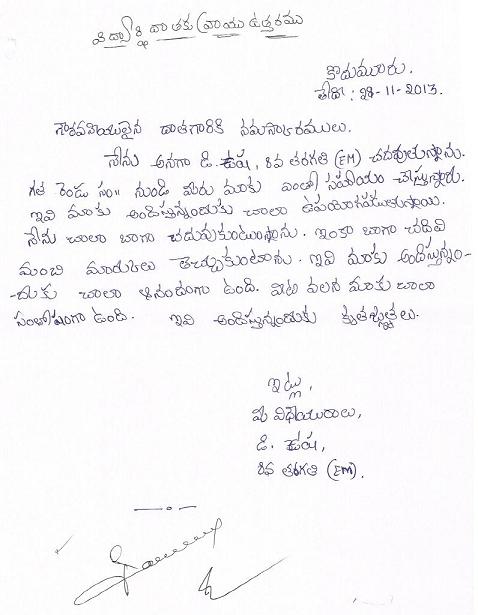 విద్యార్థి దాతకు వ్రాయు ఉత్తరము
కొడుమూరు.
తేది : 28-11-2013.
గౌరవనీయులైన దాతగారికి నమస్కారములు.
నేను అనగా డి. ఉష, 8వ తరగతి (EM) చదువుతున్నాను.
గత రెండు సం॥ నుండి మీరు మాకు ఎంతో సహాయం చేస్తున్నారు.
ఇవి మాకు అందిస్తున్నందుకు చాలా ఉపయోగపడుతున్నాయి.
నేను చాలా బాగా చదువుకుంటున్నాను. ఇంకా బాగా చదివి
మంచి మార్కులు తెచ్చుకుంటాను. ఇవి మాకు అందిస్తున్నం-
-దుకు చాలా ఆనందంగా ఉంది. వీటి వలన మాకు చాలా
సంతోషంగా ఉంది. ఇవి అందిస్తున్నందుకు కృతజ్ఞతలు.
ఇట్లు,
మీ విధేయురాలు,
డి. ఉష,
8వ తరగతి (EM).